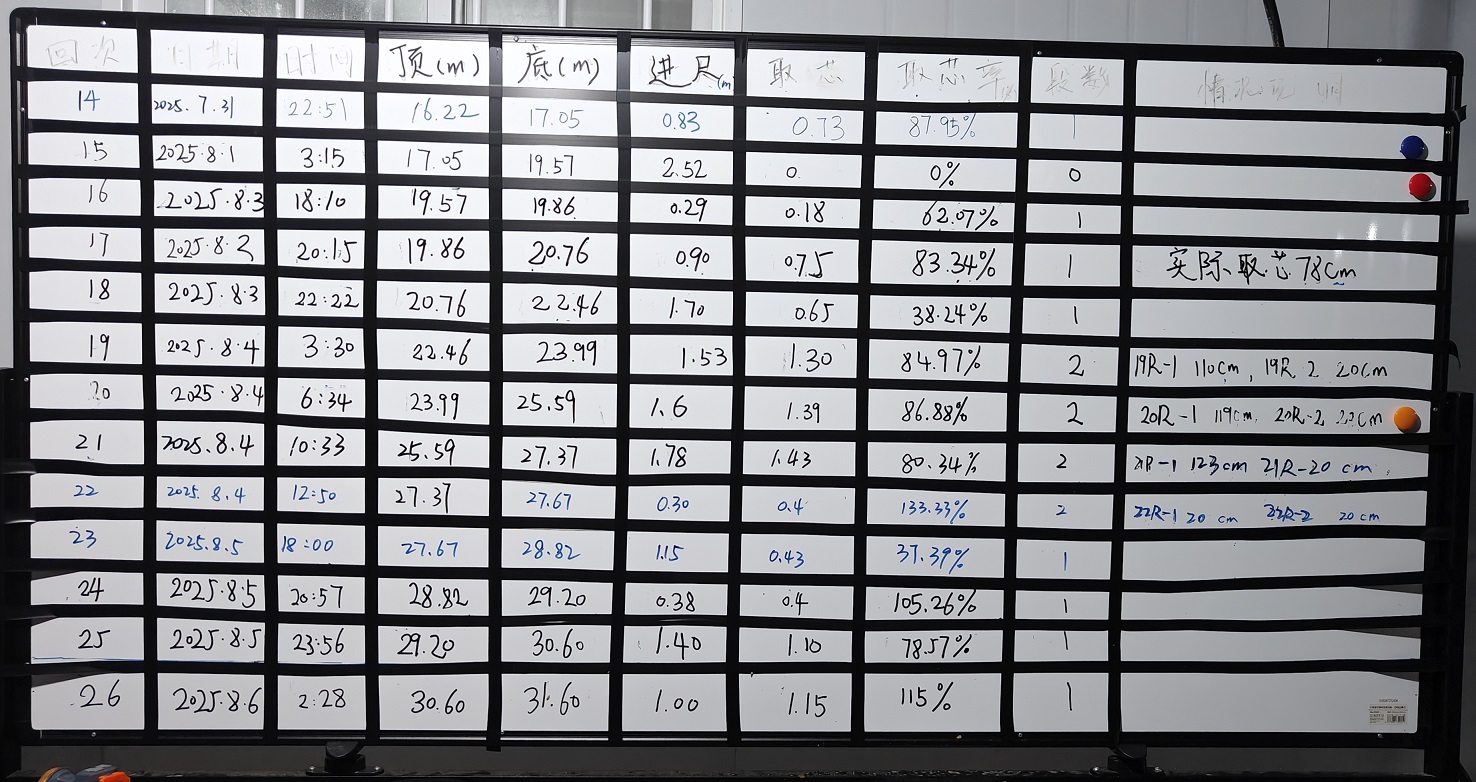 回次 日期 时间 顶(m) 底(m) 进尺(m) 取芯 取芯率% 段数 情况说明
14 2025.7.31 22:51 16.22 17.05 0.83 0.73 87.95% 1
15 2025.8.1 3:15 17.05 19.57 2.52 0. 0% 0
16 2025.8.3 18:10 19.57 19.86 0.29 0.18 62.07% 1
17 2025.8.2 20:15 19.86 20.76 0.90 0.75 83.34% 1 实际取芯78cm
18 2025.8.3 22:22 20.76 22.46 1.70 0.65 38.24% 1
19 2025.8.4 3:30 22.46 23.99 1.53 1.30 84.97% 2 19R-1 110cm, 19R 2 20cm
20 2025.8.4 6:34 23.99 25.59 1.6 1.39 86.88% 2 20R-1 119cm, 20R-2 cm
21 2025.8.4 10:33 25.59 27.37 1.78 1.43 80.34% 2 21R-1 123cm 21R-20 cm
22 2025.8.4 12:50 27.37 27.67 0.30 0.4 133.33% 2 22R-1 20 cm 22R-2 20 cm
23 2025.8.5 18:00 27.67 28.82 1.15 0.43 37.39% 1
24 2025.8.5 20:57 28.82 29.20 0.38 0.4 105.26% 1
25 2025.8.5 23:56 29.20 30.60 1.40 1.10 78.57% 1
26 2025.8.6 2:28 30.60 31.60 1.00 1.15 115% 1